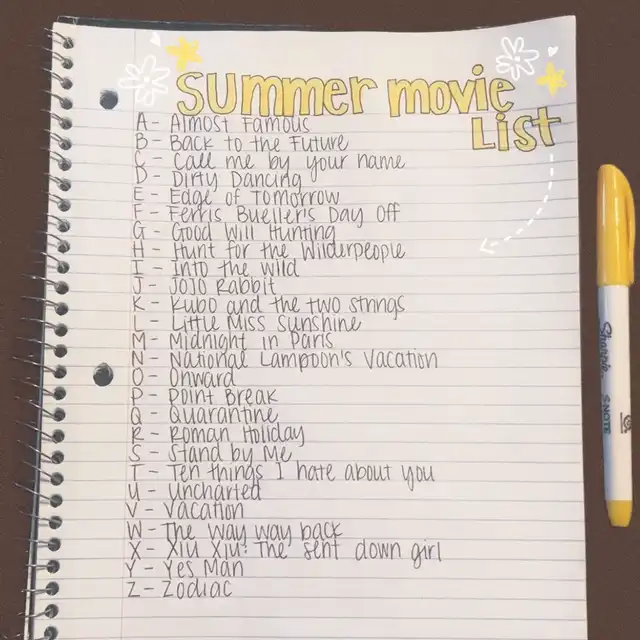 Summer movie
List
A - Almost Famous
B - Back to the Future
C - Call me by your name
D - Dirty Dancing
E - Edge of Tomorrow
F - Ferris Bueller's Day Off
G - Good Will Hunting
H - Hunt for the Wilderpeople
I - Into the wild
J - JoJo Rabbit
K - Kubo and the two strings
L - Little Miss Sunshine
M - Midnight in Paris
N - National Lampoon's Vacation
O - Onward
P - Point Break
Q - Quarantine
R - Roman Holiday
S - Stand by Me
T - Ten things I hate about you
U - Uncharted
V - Vacation
W - The way way back
X - Xiu Xiu: The sent down girl
Y - Yes Man
Z - Zodiac
Sharpie S·NOTE